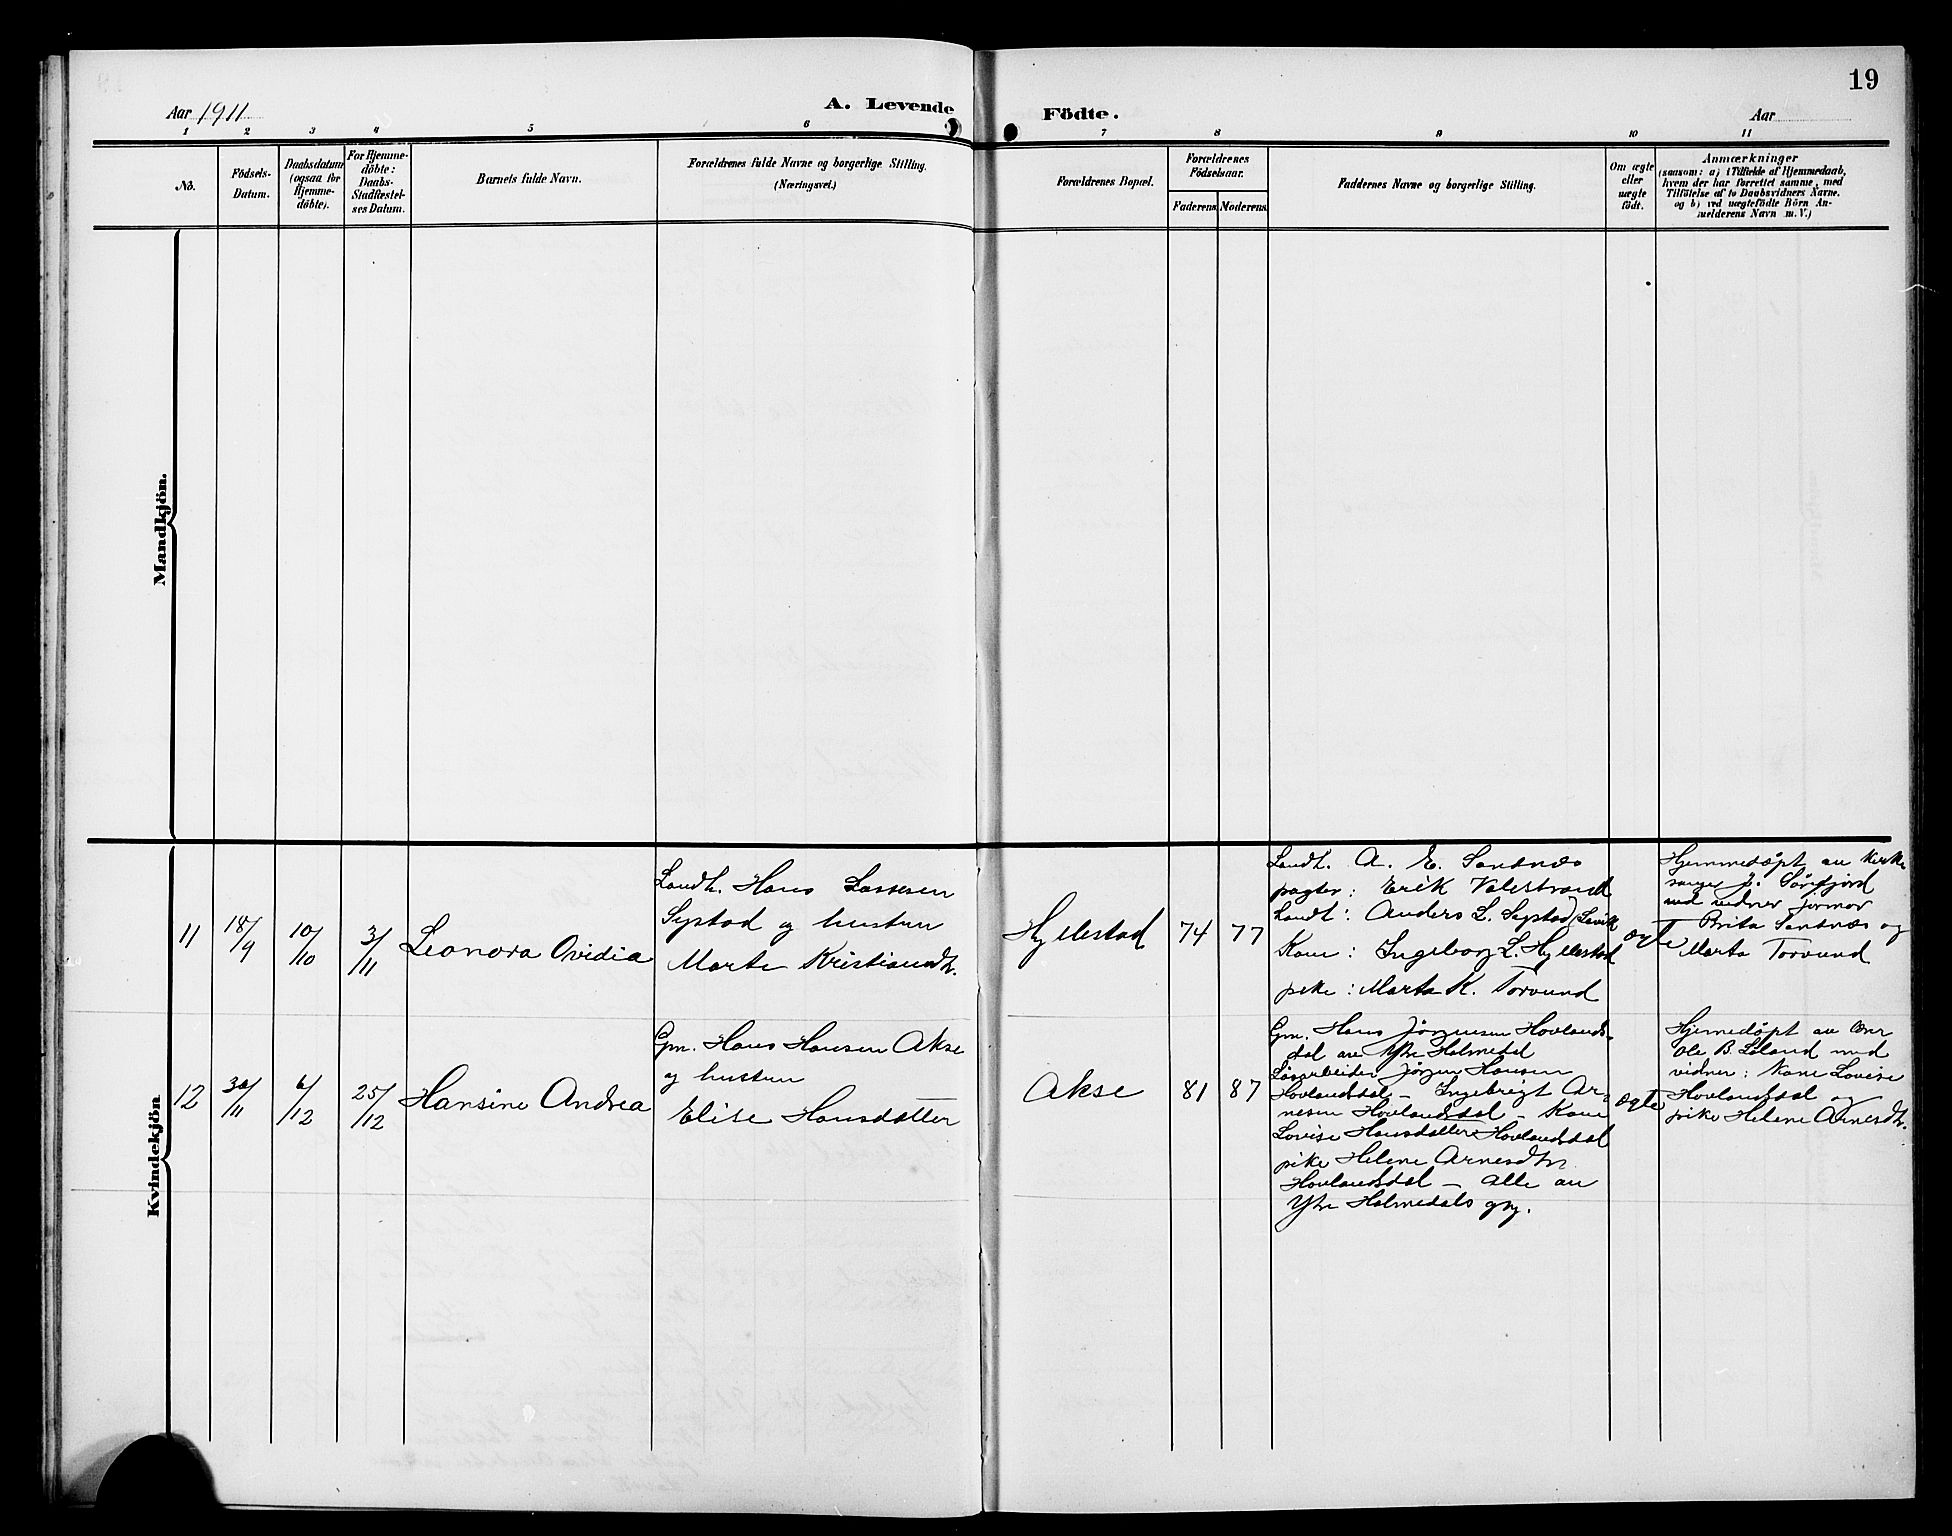 19
Aar 1911
A. Levende Födte.
Aar
1 2 3 4 5 6 7 8 9 10 11
No.
Födsels-
Datum.
Daabsdatum
(ogsaa for
Hjemme-
döbte).
For Hjemme-
döbte:
Daabs-
Stadfæstel-
ses Datum.
Barnets fulde Navn.
Forældrenes fulde Navne og borgerlige Stilling.
(Næringsvei.)
Forældrenes Bopæl.
Forældrenes
Födselsaar.
Faderens. Moderens.
Faddernes Navne og borgerlige Stilling.
Om ægte
eller
uægte
födt.
Anmærkninger
(saasom: a) i Tilfælde af Hjemmedaab,
hvem der har forrettet samme, med
Tilföielse af to Daabsvidners Navne.
og b) ved uægtefödte Börn An-
melderens Navn m. V.)
Mandkjön.
Kvindekjön
11
18/9
10/10
3/11
Leonora Ovidia
Landh. Hans Lassesen
Systad og hustru
Marte Kristiansdt.
Hyllestad
74
77
Landh. A. E. Sandnæs
pagter: Erik Valestrand
Landh: Anders L. Systad (Levik
Kone: Ingeborg L. Hyllestad
pike: Marta K. Torvund
ægte
Hjemmedøpt av Kirke
sanger J. Sörefjord
med vidner jormor
Brita Sandnæs og
Marta Torvund
12
30/11
6/12
25/12
Hansine Andrea
Gm. Hans Hansen Akse
og hustru
Elise Hansdatter
Akse
81
87
Gm. Hans Jørgensen Hovlands-
dal av Ytre Holmedal
Løsarbeider Jørgen Hansen
Hovlandsdal – Ingebrigt Ar-
nesen Hovlandsdal – Kone
Lovise Hansdatter Hovlandsdal
pike Helene Arnesdtr
Hovlandsdal – alle av
Ytre Holmedals
ægte
Hjemedøpt av
Ole B. Leland med
vidner: Kone Lovise
Hovlandsdal og
pike Helene Arnesdt.